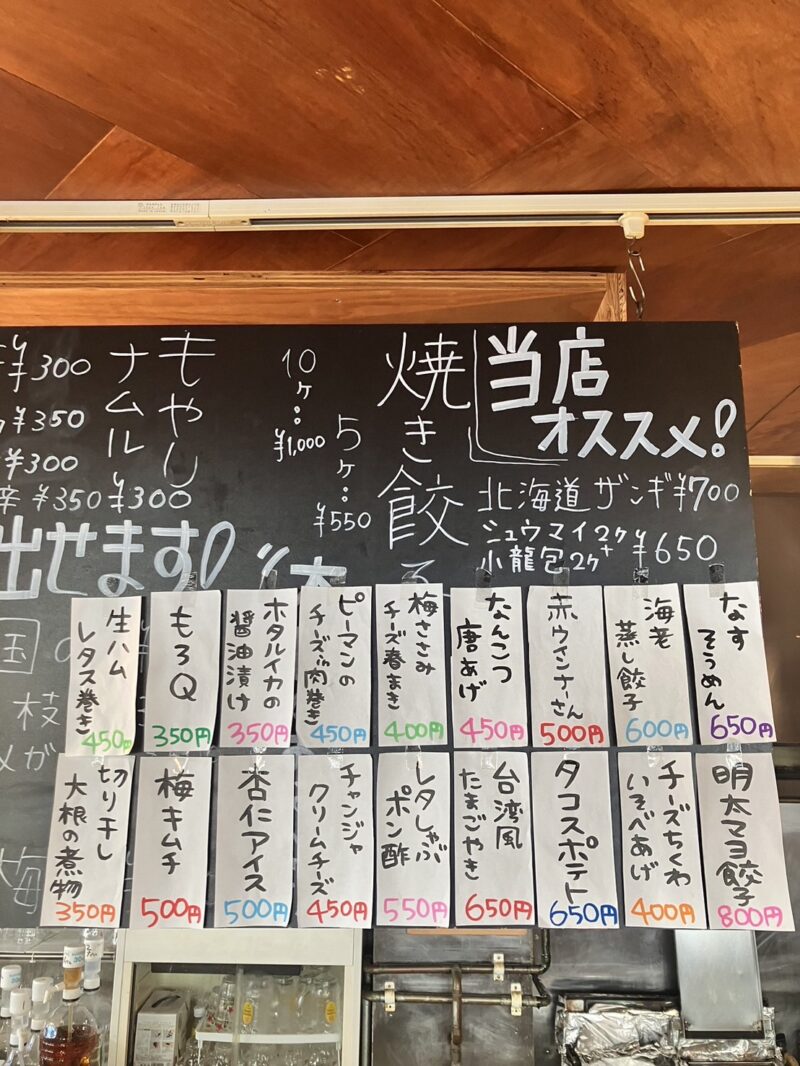 当店
オススメ!
北海道ザンギ¥700
シュウマイ2ケ+
小龍包2ケ
¥650
焼き餃子
5ケ:
¥550
10ケ:
¥1,000
もやし
ナムル
¥300
¥300
¥350
¥300
¥350
出せます!
なす
そうめん
650円
海老
蒸し餃子
600円
赤ウインナーさん
500円
なんこつ
唐あげ
450円
梅ささみ
チーズ春まき
400円
ピーマンの
チーズin肉巻き
450円
ホタルイカの
醤油漬け
350円
もろQ
350円
生ハム
レタス巻き
450円
明太マヨ餃子
800円
チーズちくわ
いそべあげ
400円
タコスポテト
650円
台湾風
たまごやき
650円
レタしゃぶ
ポン酢
550円
チャンジャ
クリームチーズ
450円
杏仁アイス
500円
梅キムチ
500円
切り干し
大根の煮物
350円